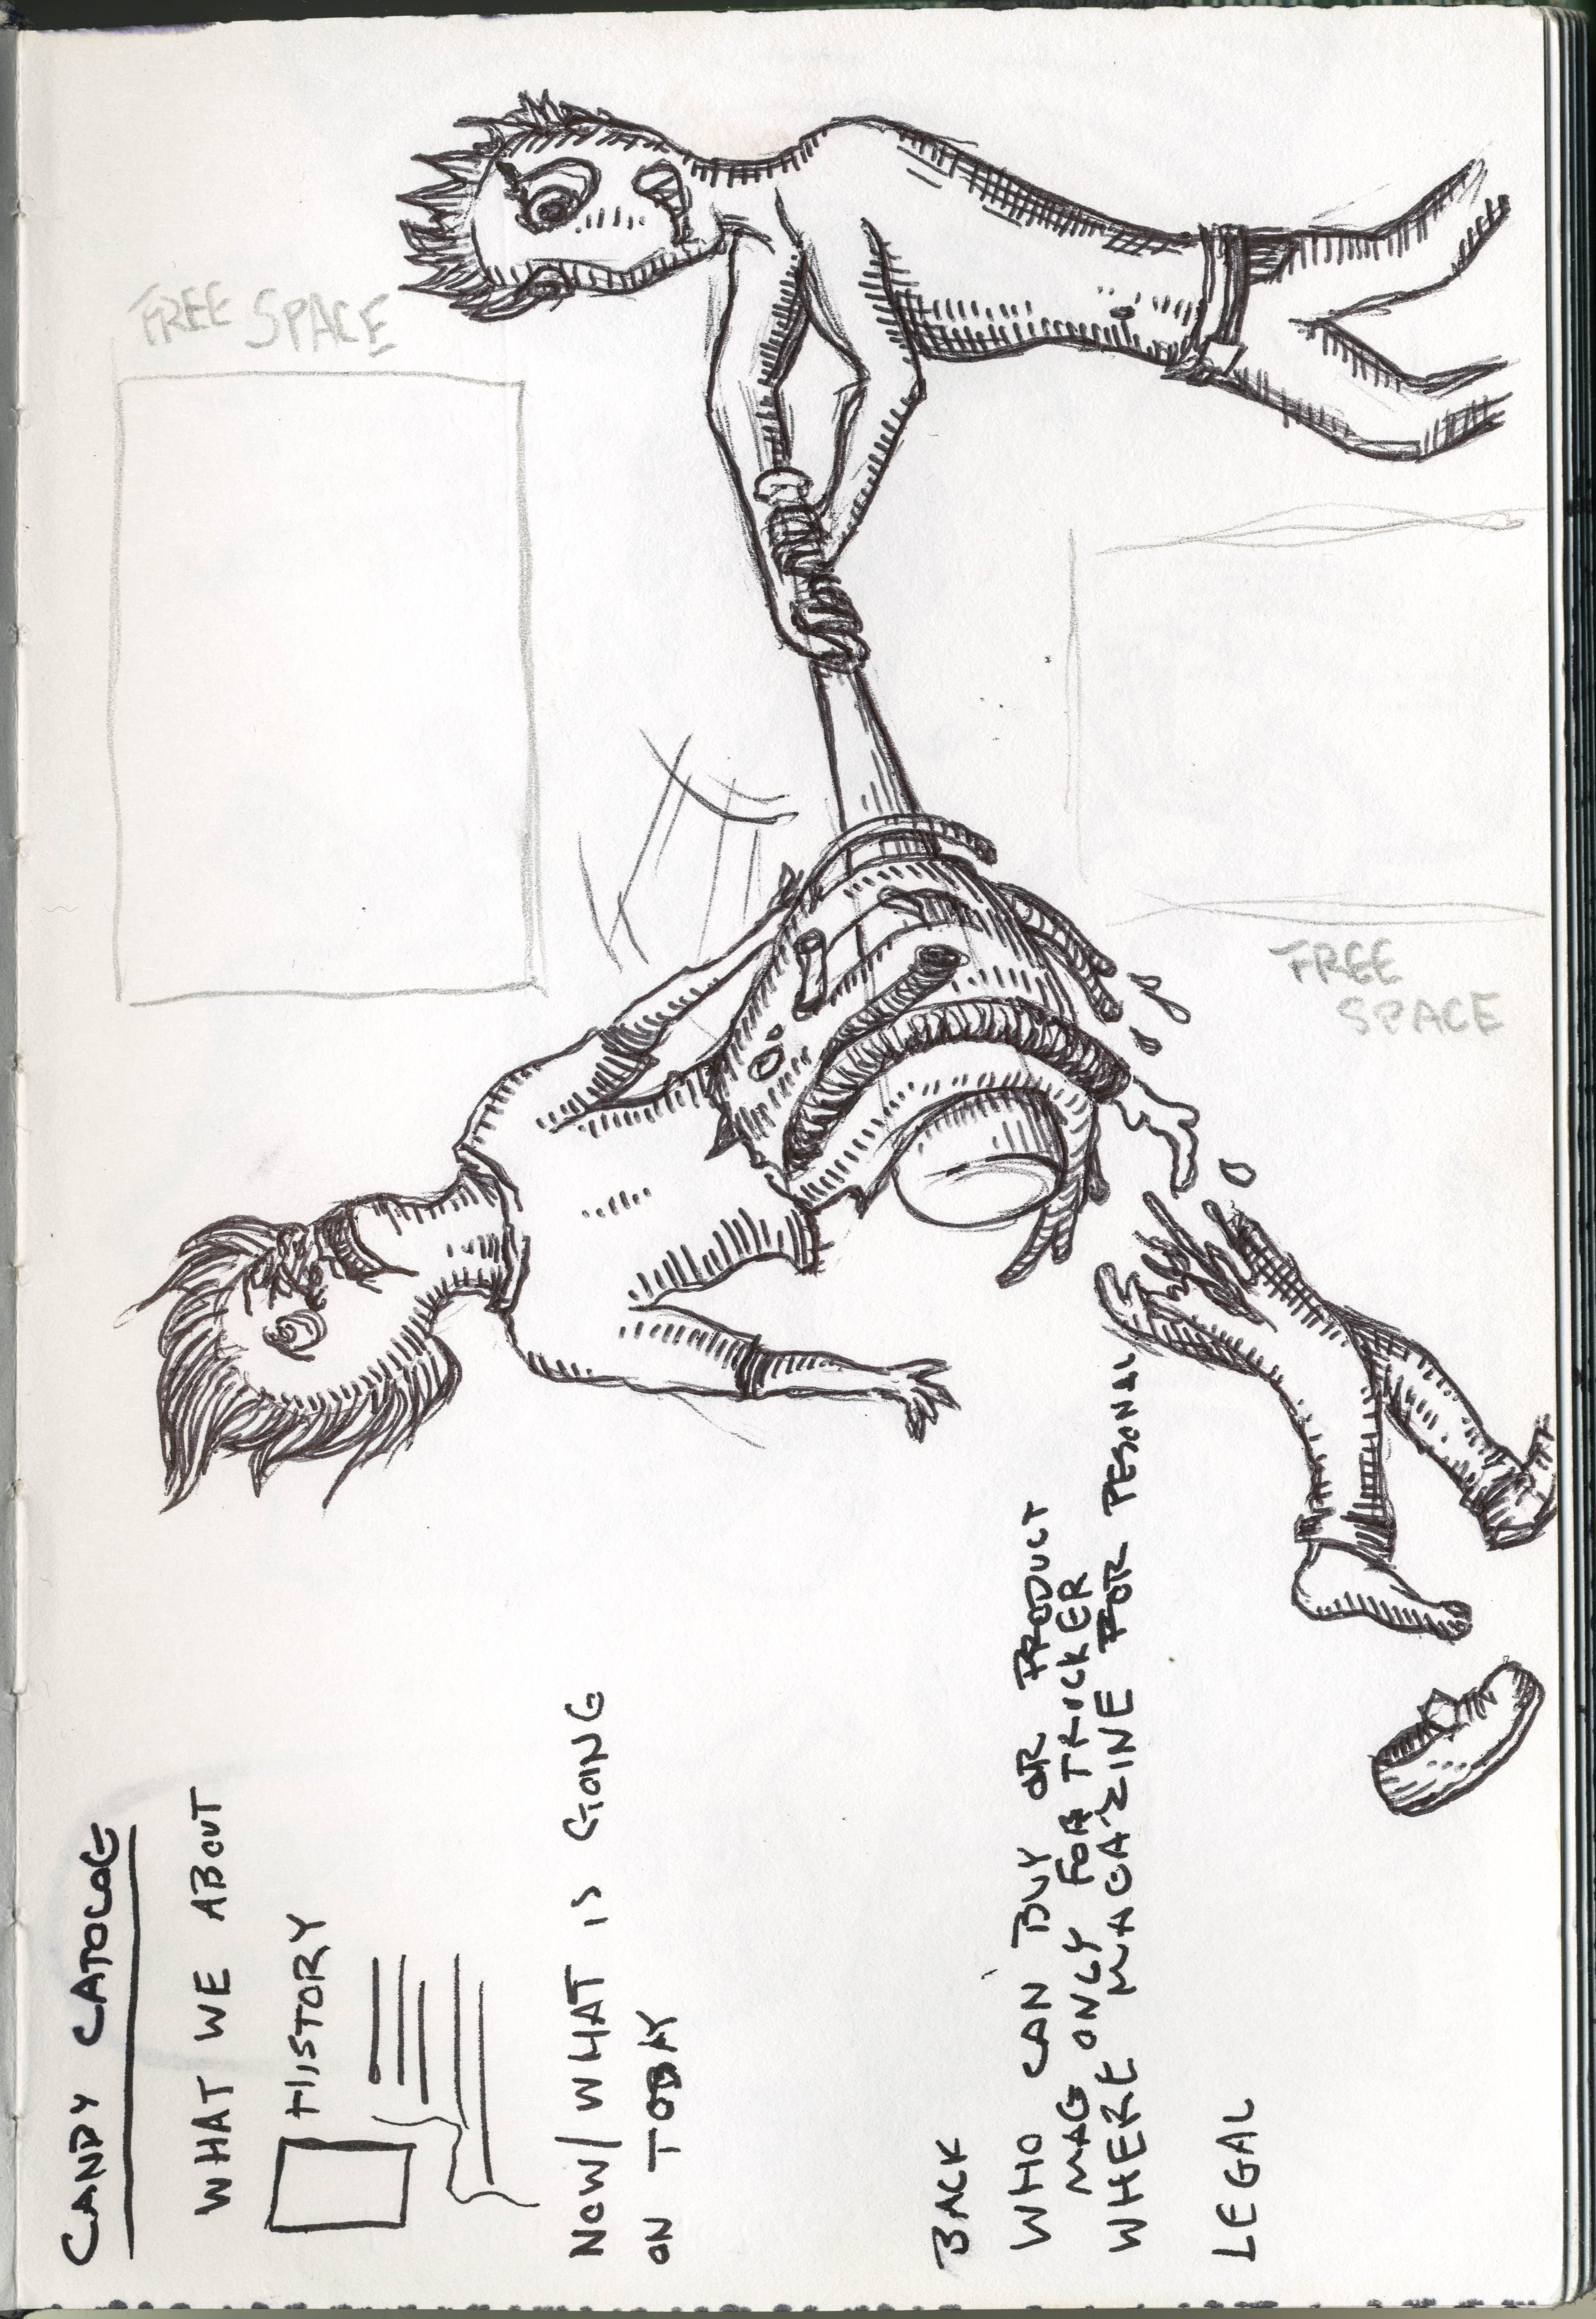 CANDY CATOLOG
WHAT WE ABOUT
HISTORY
NOW/WHAT IS GOING
ON TODAY
BACK
WHO CAN BUY OR PRODUCT
MAG ONLY FOR TRUCKER
WHERE MAGAZINE FOR PESONAL
LEGAL
FREE SPACE
FREE
SPACE